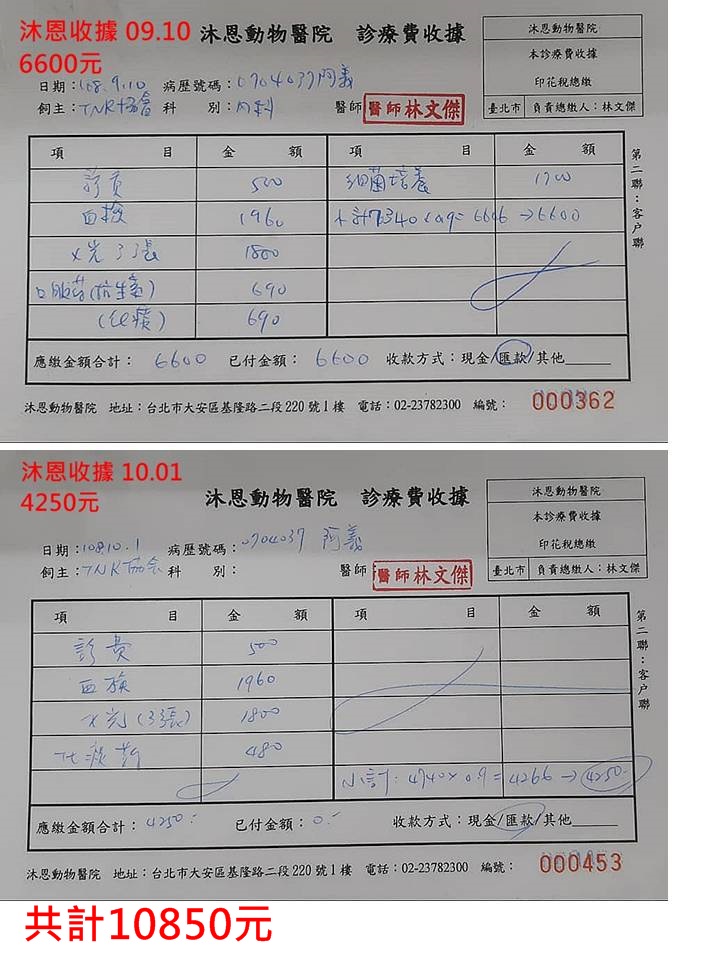 沐恩收據 09.10
6600元
沐恩動物醫院 診療費收據
沐恩動物醫院
本診療費收據
印花稅總繳
臺北市 負責總繳人：林文傑
日期：108.9.10 病歷號碼：0704037阿義
飼主：TNR協會 科 別：內科 醫師 醫師林文傑
項 目 金 額 項 目 金 額
診費 500 細菌培養 1700
血檢 1960 小計7340×0.9=6606→6600
X光3張 1800
口服藥(抗生素) 690
690
第二聯：客戶聯
應繳金額合計： 6600 已付金額： 6600 收款方式：現金/匯款/其他
沐恩動物醫院 地址：台北市大安區基隆路二段220號1樓 電話：02-23782300 編號： 000362
沐恩收據 10.01
4250元
沐恩動物醫院 診療費收據
沐恩動物醫院
本診療費收據
印花稅總繳
臺北市 負責總繳人：林文傑
日期：108.10.1 病歷號碼：0704037 阿義
飼主：TNR協會 科 別： 醫師 醫師林文傑
項 目 金 額 項 目 金 額
診費 500
血檢 1960
X光(3張) 1800
480
小計：4740×0.9=4266→4250.
第二聯：客戶聯
應繳金額合計：4250.- 已付金額：0.- 收款方式：現金/匯款/其他
沐恩動物醫院 地址：台北市大安區基隆路二段220號1樓 電話：02-23782300 編號： 000453
共計10850元